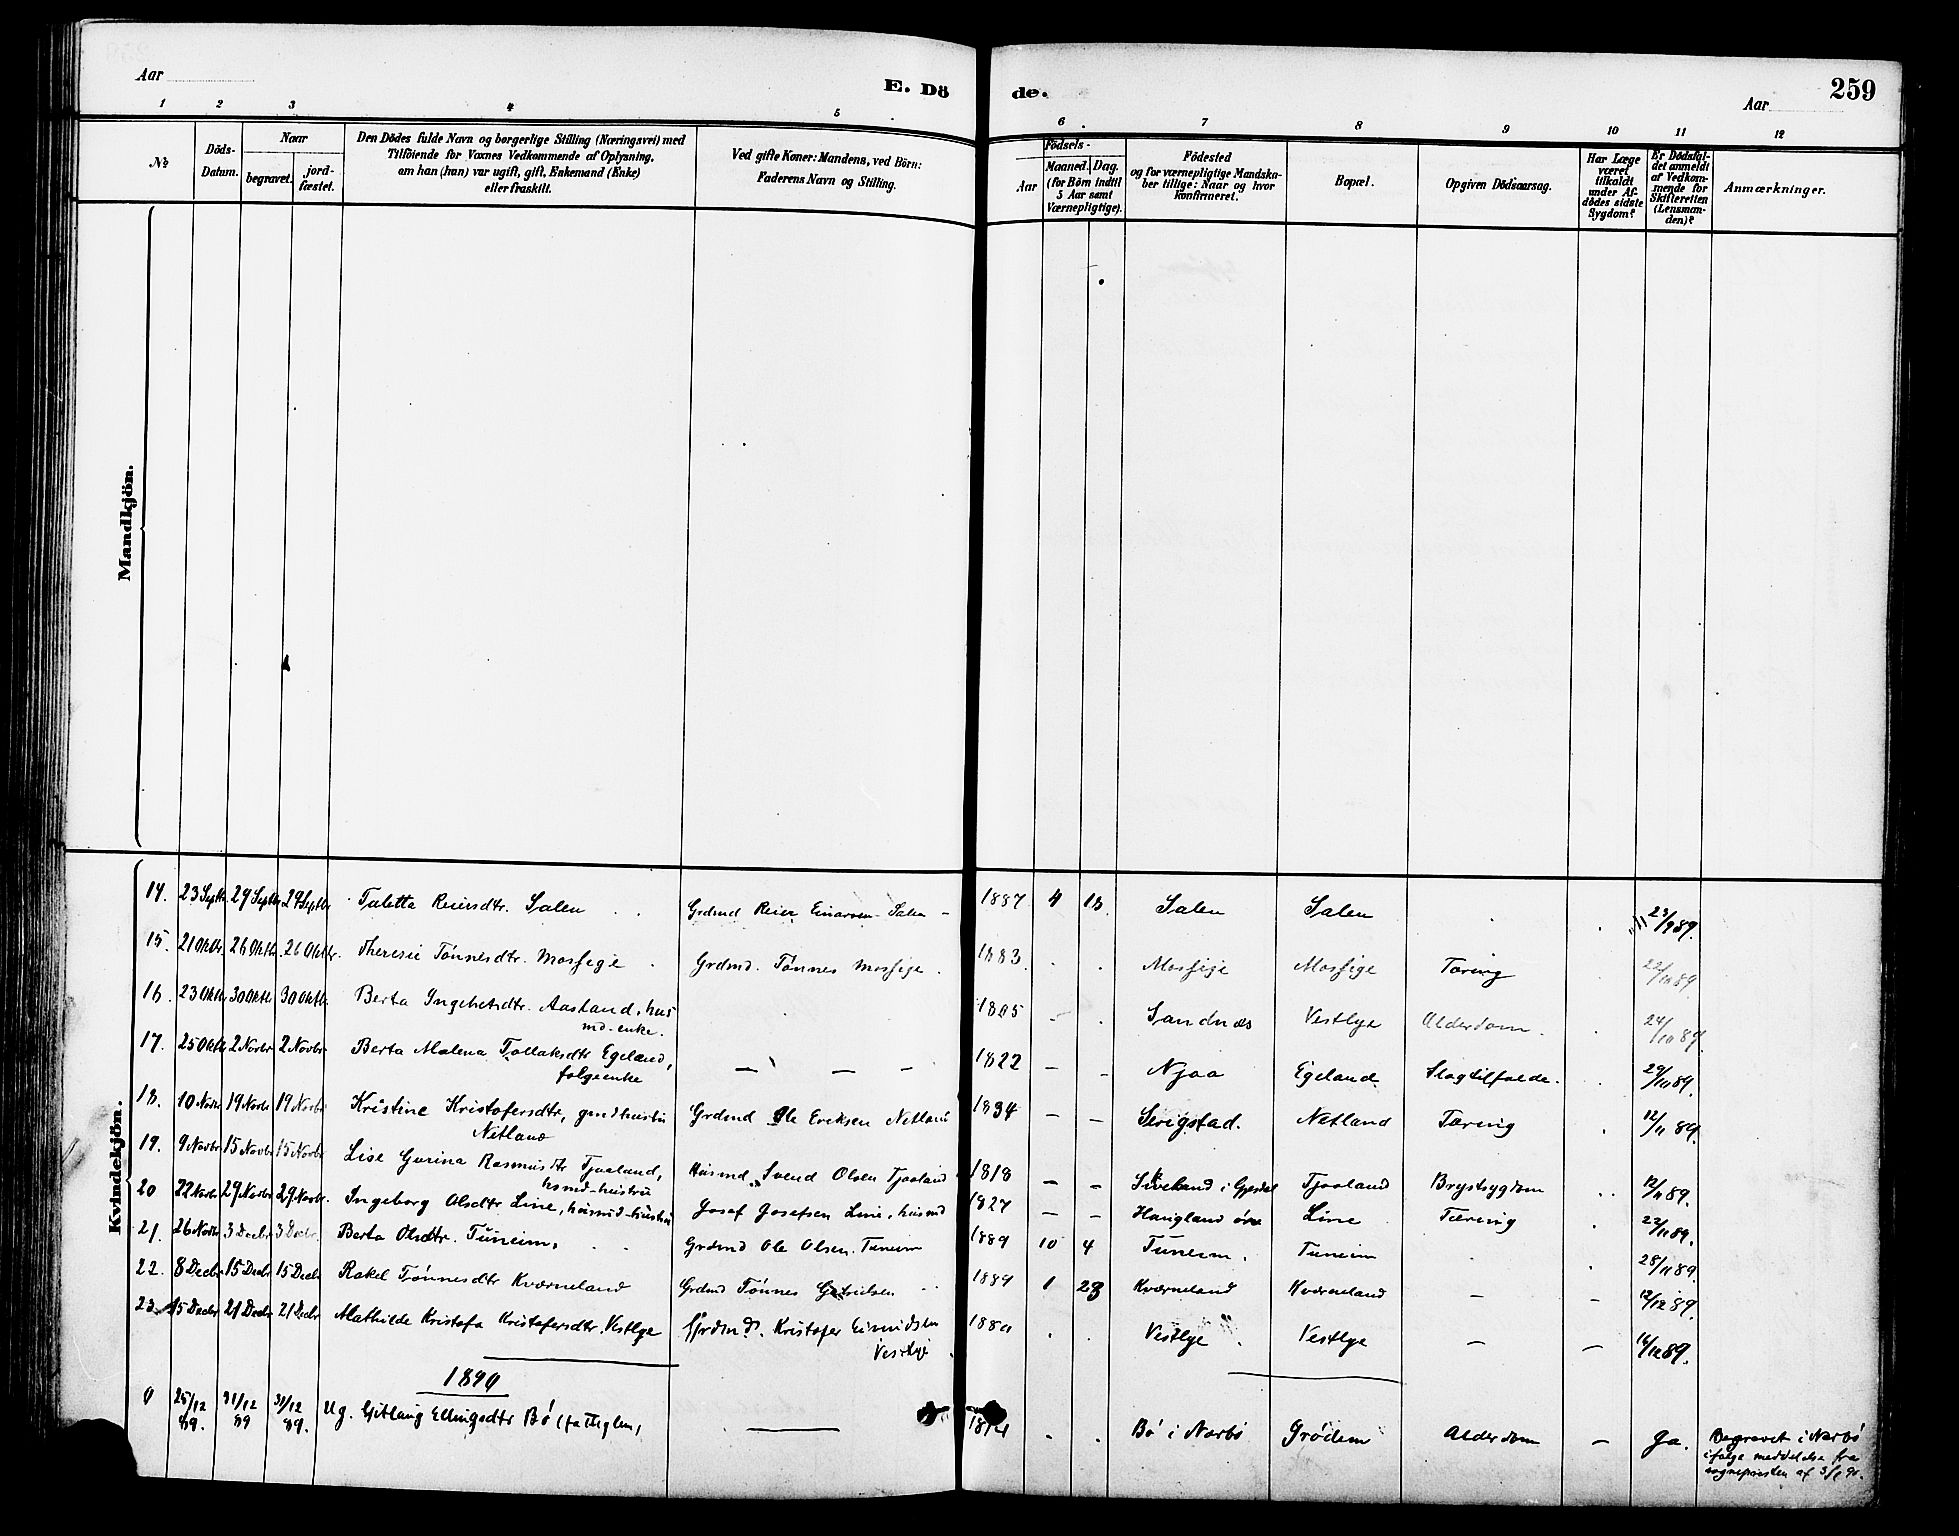 Aar
E. Dö
de.
Aar
259
1 2 3 4 5 6 7 8 9 10 11 12
№
Döds-Datum.
Naar
begravet.
jord-fæstet.
Den Dödes fulde Navn og borgerlige Stilling (Næringsvei) med
Tilföiende for Voxnes Vedkommende af Oplysning,
om han (hun) var ugift, gift, Enkemand (Enke)
eller fraskilt.
Ved gifte Koner: Mandens, ved Börn:
Faderens Navn og Stilling.
Födsels-
Aar
Maaned. Dag.
(for Börn indtil
5 Aar samt
Værnepligtige).
Födested
og for værnepligtige Mandska-
ber tillige: Naar og hvor
konfirmeret.
Bopæl.
Opgiven Dödsaarsag.
Har Læge
været
tilkaldt
under Af-
dödes sidste
Sygdom?
Er Dödsfal-
det anmeldt
af Vedkom-
mende for
Skifteretten
(Lensman-
den)?
Anmærkninger.
Mandkjön.
Kvindekjön.
14. 23 Septbr 29 Septbr 29 Septbr Taletta Reiersdtr. Salen Grdmd Reier Einarsen Salen 1887 4 18. Salen Salen 23/9 89.
15. 21 Oktbr 26 Oktbr 26 Oktbr. Theresie Tønnesdtr. Mossige Grdmd. Tønnes Mossige. 1883 Mossige Mossige Tæring 22/10 89.
16. 23 Oktbr 30 Oktbr 30 Oktbr. Berta Ingebretsdtr. Aasland, hus
md-enke. 1805 Sandnes Vestlye Alderdom. 24/10 89.
17. 25 Oktbr 2 Novbr 2 Novbr Berta Malena Tollaksdtr Egeland,
folgeenke — — — 1822 — — Njaa Egeland Slagtilfælde. 29/10 89.
18. 10 Novbr 19 Novbr 19 Novbr Kristine Kristofersdtr, gmdhustru
Netland Grdmd Ole Eriksen Netland 1834 — — Serigstad. Netland Tæring 12/11 89.
19. 9 Novbr 15 Novbr 15 Novbr Lise Gurina Rasmusdtr Tjaaland,
hsmd-hustru Husmd Svend Olsen Tjaaland 1818 — — i Gjesdal Tjaaland Brystsygdom 12/11 89.
20 22 Novbr 29 Novbr 29 Novbr. Ingeborg Olsdtr Line, husmd-hustru Josef Josefsen Line, husmd 1827 — — Haugland Line Tæring 22/11 89.
21. 26 Novbr 3 Decbr 3 Decbr. Berta Olsdtr. Tuneim. Grdmd Ole Olsen Tuneim 1889 10 4 Tuneim. Tuneim 28/11 89.
22. 8 Decbr 15 Decbr 15 Decbr Rakel Tønnesdtr Kværneland Grdmd Tønnes Gabrielsen 1889 1 23 Kværneland Kværneland — — 12/12 89.
23 15 Decbr 21 Decbr 21 Decbr Mathilde Kristofa Kristofersdtr. Vestlye Grdmd. Kristofer
Vestlye 1880 Vestlye Vestlye — — 16/12 89.
1890
0 25/12 89. 31/12 89 31/12 89. Ug. Ellingsdtr Bø (fattiglem) 1814 Bø i Nærbø Grødem Alderdom — Ja. Begravet i Nærbø
ifølge meddelelse fra
sognepresten af 3/1 90.